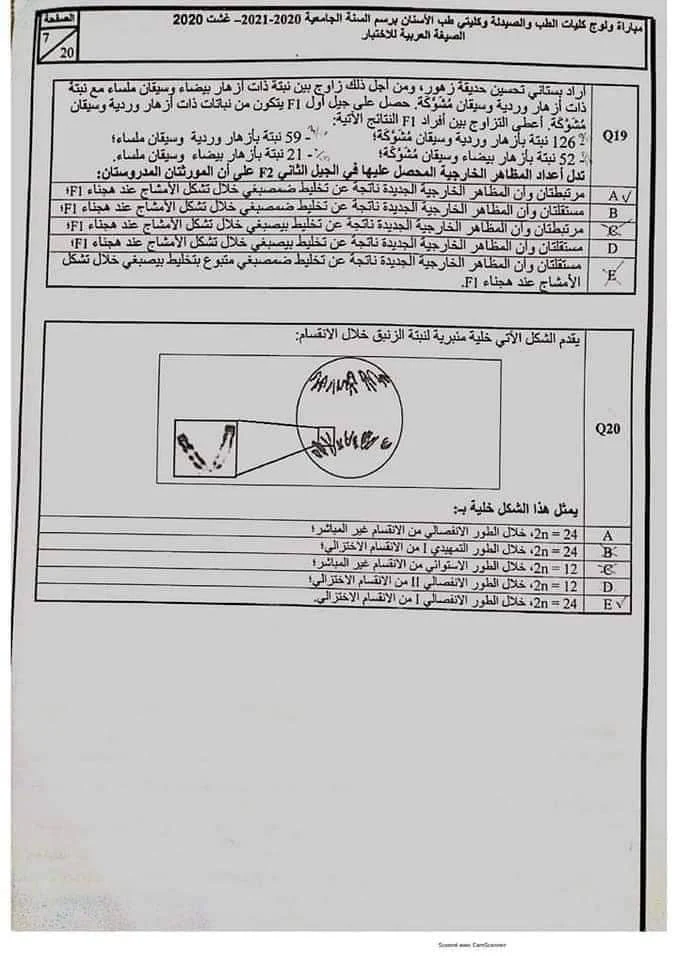 الصفحة
7
20
مباراة ولوج كليات الطب والصيدلة وكليتي طب الأسنان برسم السنة الجامعية 2020-2021– غشت 2020
الصيغة العربية للاختبار
Q19
أراد بستاني تحسين حديقة زهور، ومن أجل ذلك زاوج بين نبتة ذات أزهار بيضاء وسيقان ملساء مع نبتة
ذات أزهار وردية وسيقان مُشَوَّكَة. حصل على جيل أول F1 يتكون من نباتات ذات أزهار وردية وسيقان
مُشَوَّكَة. أعطى التزاوج بين أفراد F1 النتائج الآتية:
126 نبتة بأزهار وردية وسيقان مُشَوَّكَة؛ - 59 نبتة بأزهار وردية وسيقان ملساء؛
52 نبتة بأزهار بيضاء وسيقان مُشَوَّكَة؛ - 21 نبتة بأزهار بيضاء وسيقان ملساء.
تدل أعداد المظاهر الخارجية المحصل عليها في الجيل الثاني F2 على أن المورثتان المدروستان:
A مرتبطتان وأن المظاهر الخارجية الجديدة ناتجة عن تخليط ضمصبغي خلال تشكل الأمشاج عند هجناء F1؛
B مستقلتان وأن المظاهر الخارجية الجديدة ناتجة عن تخليط ضمصبغي خلال تشكل الأمشاج عند هجناء F1؛
C مرتبطتان وأن المظاهر الخارجية الجديدة ناتجة عن تخليط بيصبغي خلال تشكل الأمشاج عند هجناء F1؛
D مستقلتان وأن المظاهر الخارجية الجديدة ناتجة عن تخليط بيصبغي خلال تشكل الأمشاج عند هجناء F1؛
E مستقلتان وأن المظاهر الخارجية الجديدة ناتجة عن تخليط ضمصبغي متبوع بتخليط بيصبغي خلال تشكل
الأمشاج عند هجناء F1.
Q20
يقدم الشكل الآتي خلية منبرية لنبتة الزنبق خلال الانقسام:
يمثل هذا الشكل خلية بـ:
A 2n = 24، خلال الطور الانفصالي من الانقسام غير المباشر؛
B 2n = 24، خلال الطور التمهيدي I من الانقسام الاختزالي؛
C 2n = 12، خلال الطور الاستوائي من الانقسام غير المباشر؛
D 2n = 12، خلال الطور الانفصالي II من الانقسام الاختزالي؛
E 2n = 24، خلال الطور الانفصالي I من الانقسام الاختزالي.
Scanned avec CamScanner